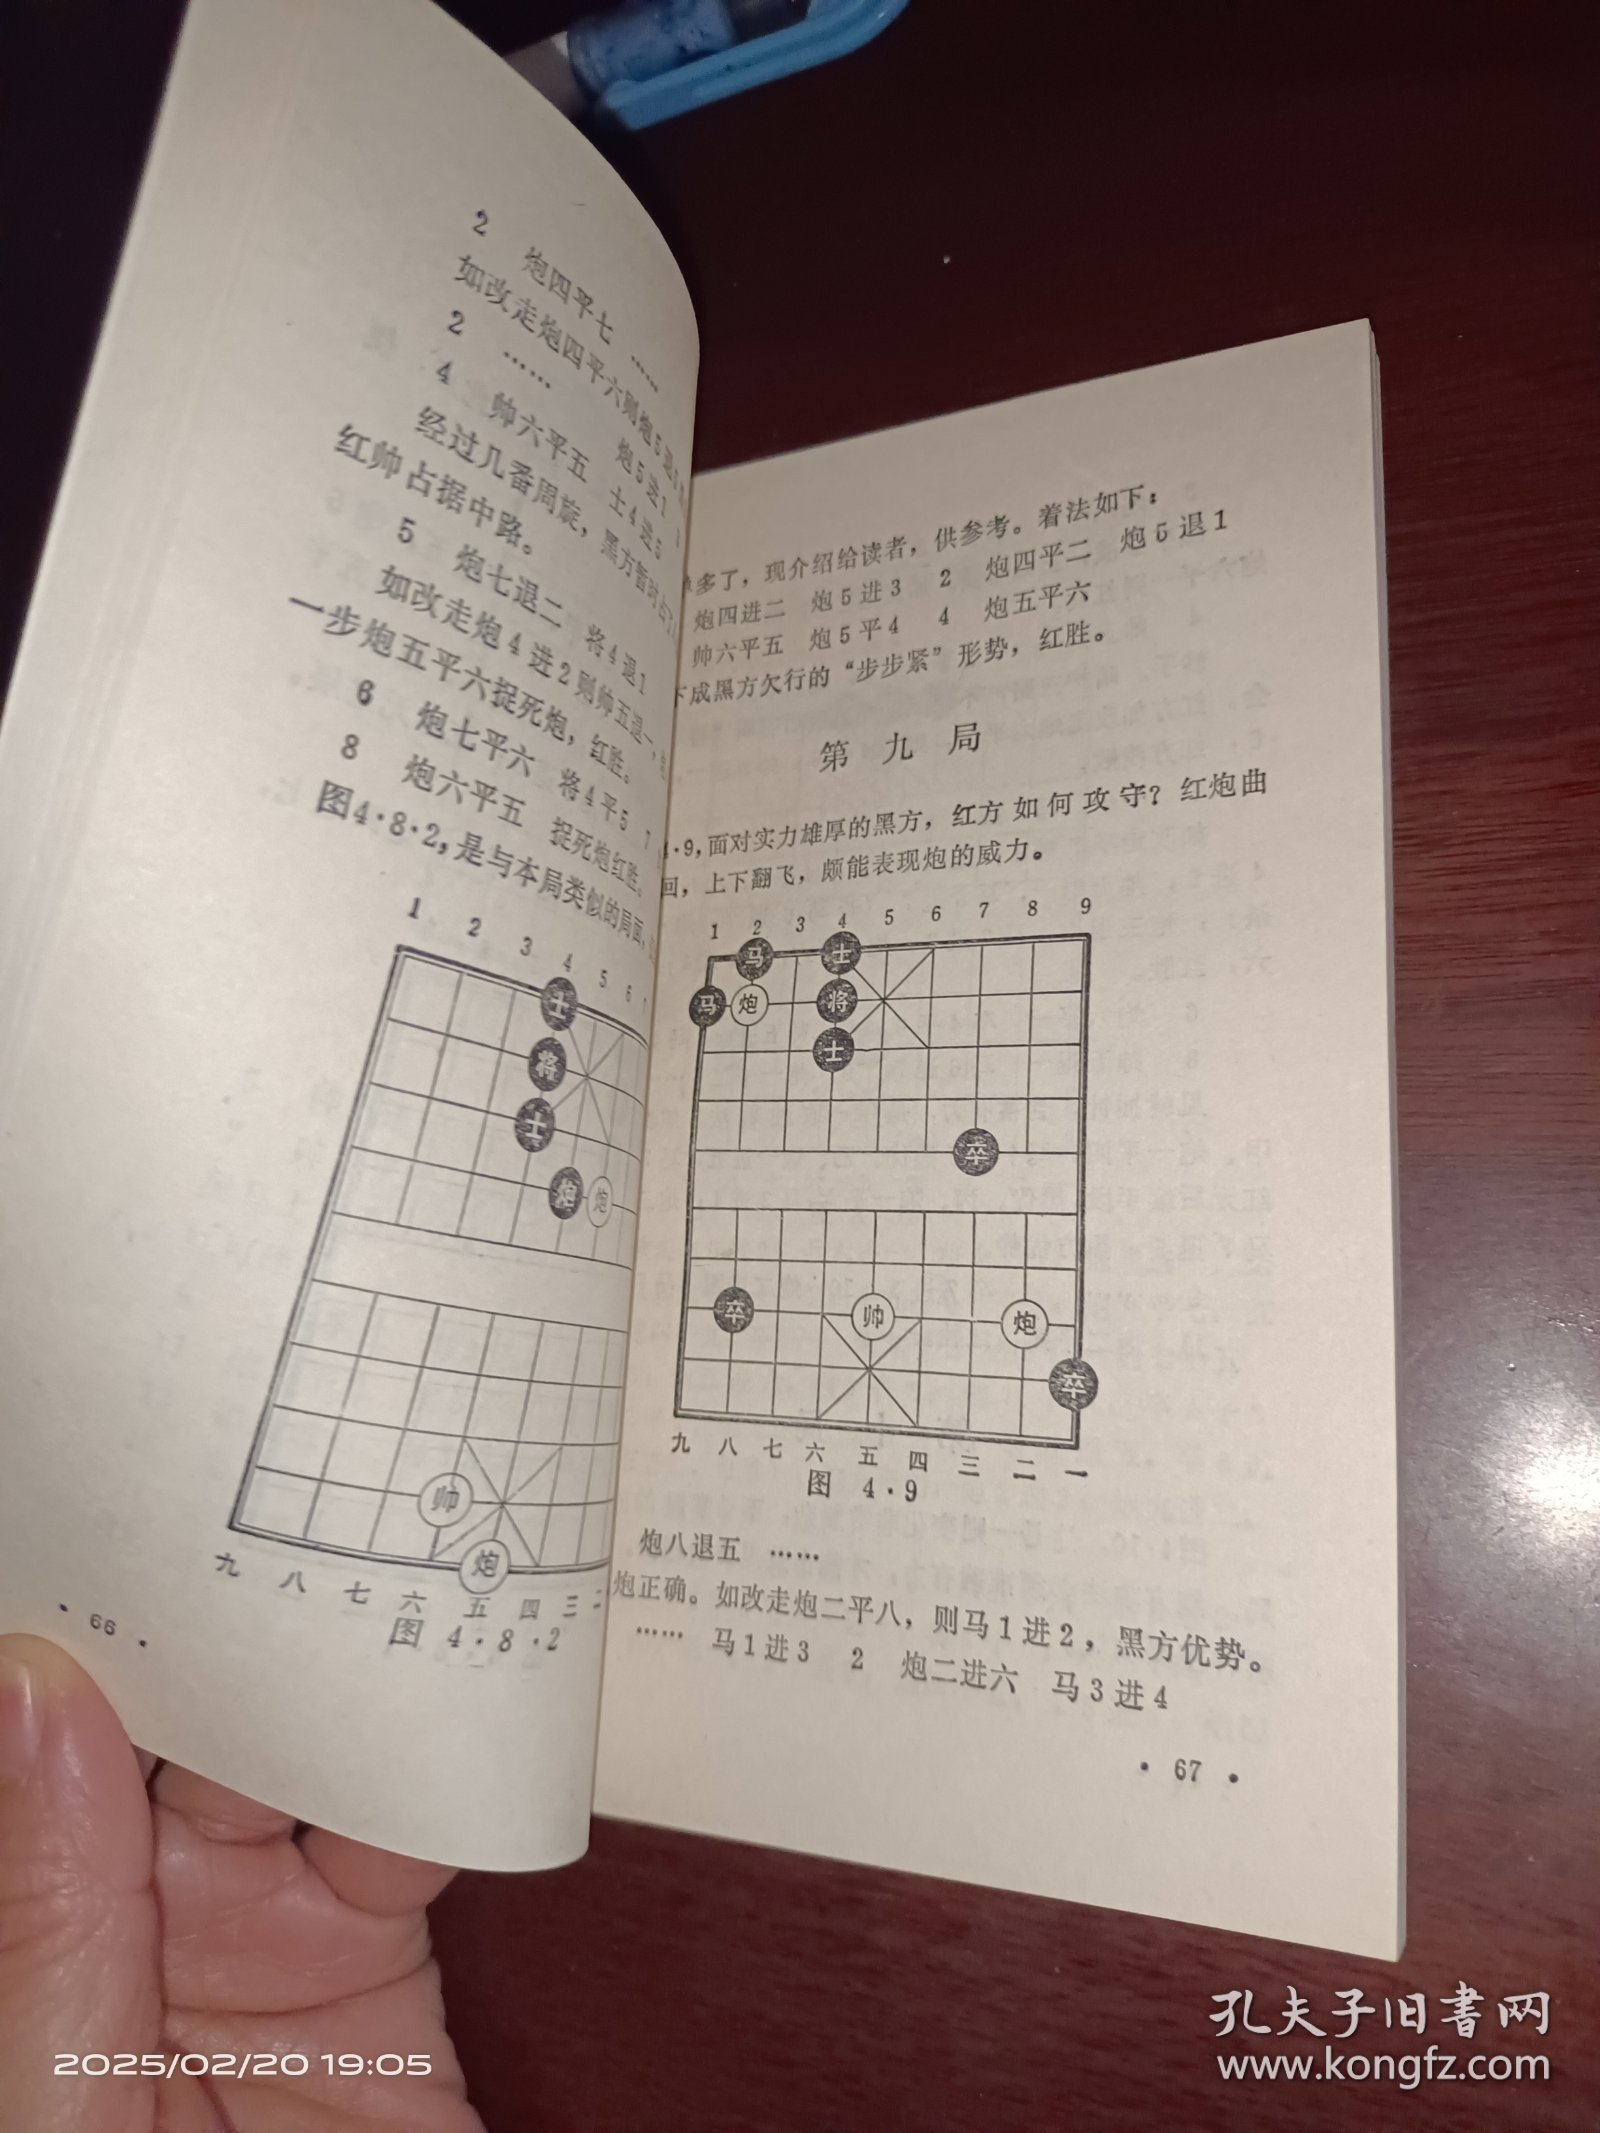 2 炮四平七 ……
如改走炮四平六则炮5退
2 …… 炮5进1
4 帅六平五 士4进5
经过几番周旋，黑方暂时占
红帅占据中路。
5 炮七退二 将4退1
如改走炮4进2则帅五退一，
一步炮五平六捉死炮，红胜。
6 炮七平六 将4平5 7
8 炮六平五 捉死炮红胜。
图4·8·2，是与本局类似的局面，
1 2 3 4 5 6
士
将
士
炮 炮
帅
炮
九 八 七 六 五 四 三
图 4·8·2
· 66 ·
多了，现介绍给读者，供参考。着法如下：
炮四进二 炮5进3 2 炮四平二 炮5退1
帅六平五 炮5平4 4 炮五平六
成黑方欠行的“步步紧”形势，红胜。
第九局
·9，面对实力雄厚的黑方，红方如何攻守？红炮曲
回，上下翻飞，颇能表现炮的威力。
1 2 3 4 5 6 7 8 9
马 士
马 炮 将
士
卒
卒 帅 炮
卒
九 八 七 六 五 四 三 二 一
图 4·9
炮八退五 ……
炮正确。如改走炮二平八，则马1进2，黑方优势。
…… 马1进3 2 炮二进六 马3进4
· 67 ·
孔夫子旧书网
www.kongfz.com
2025/02/20 19:05